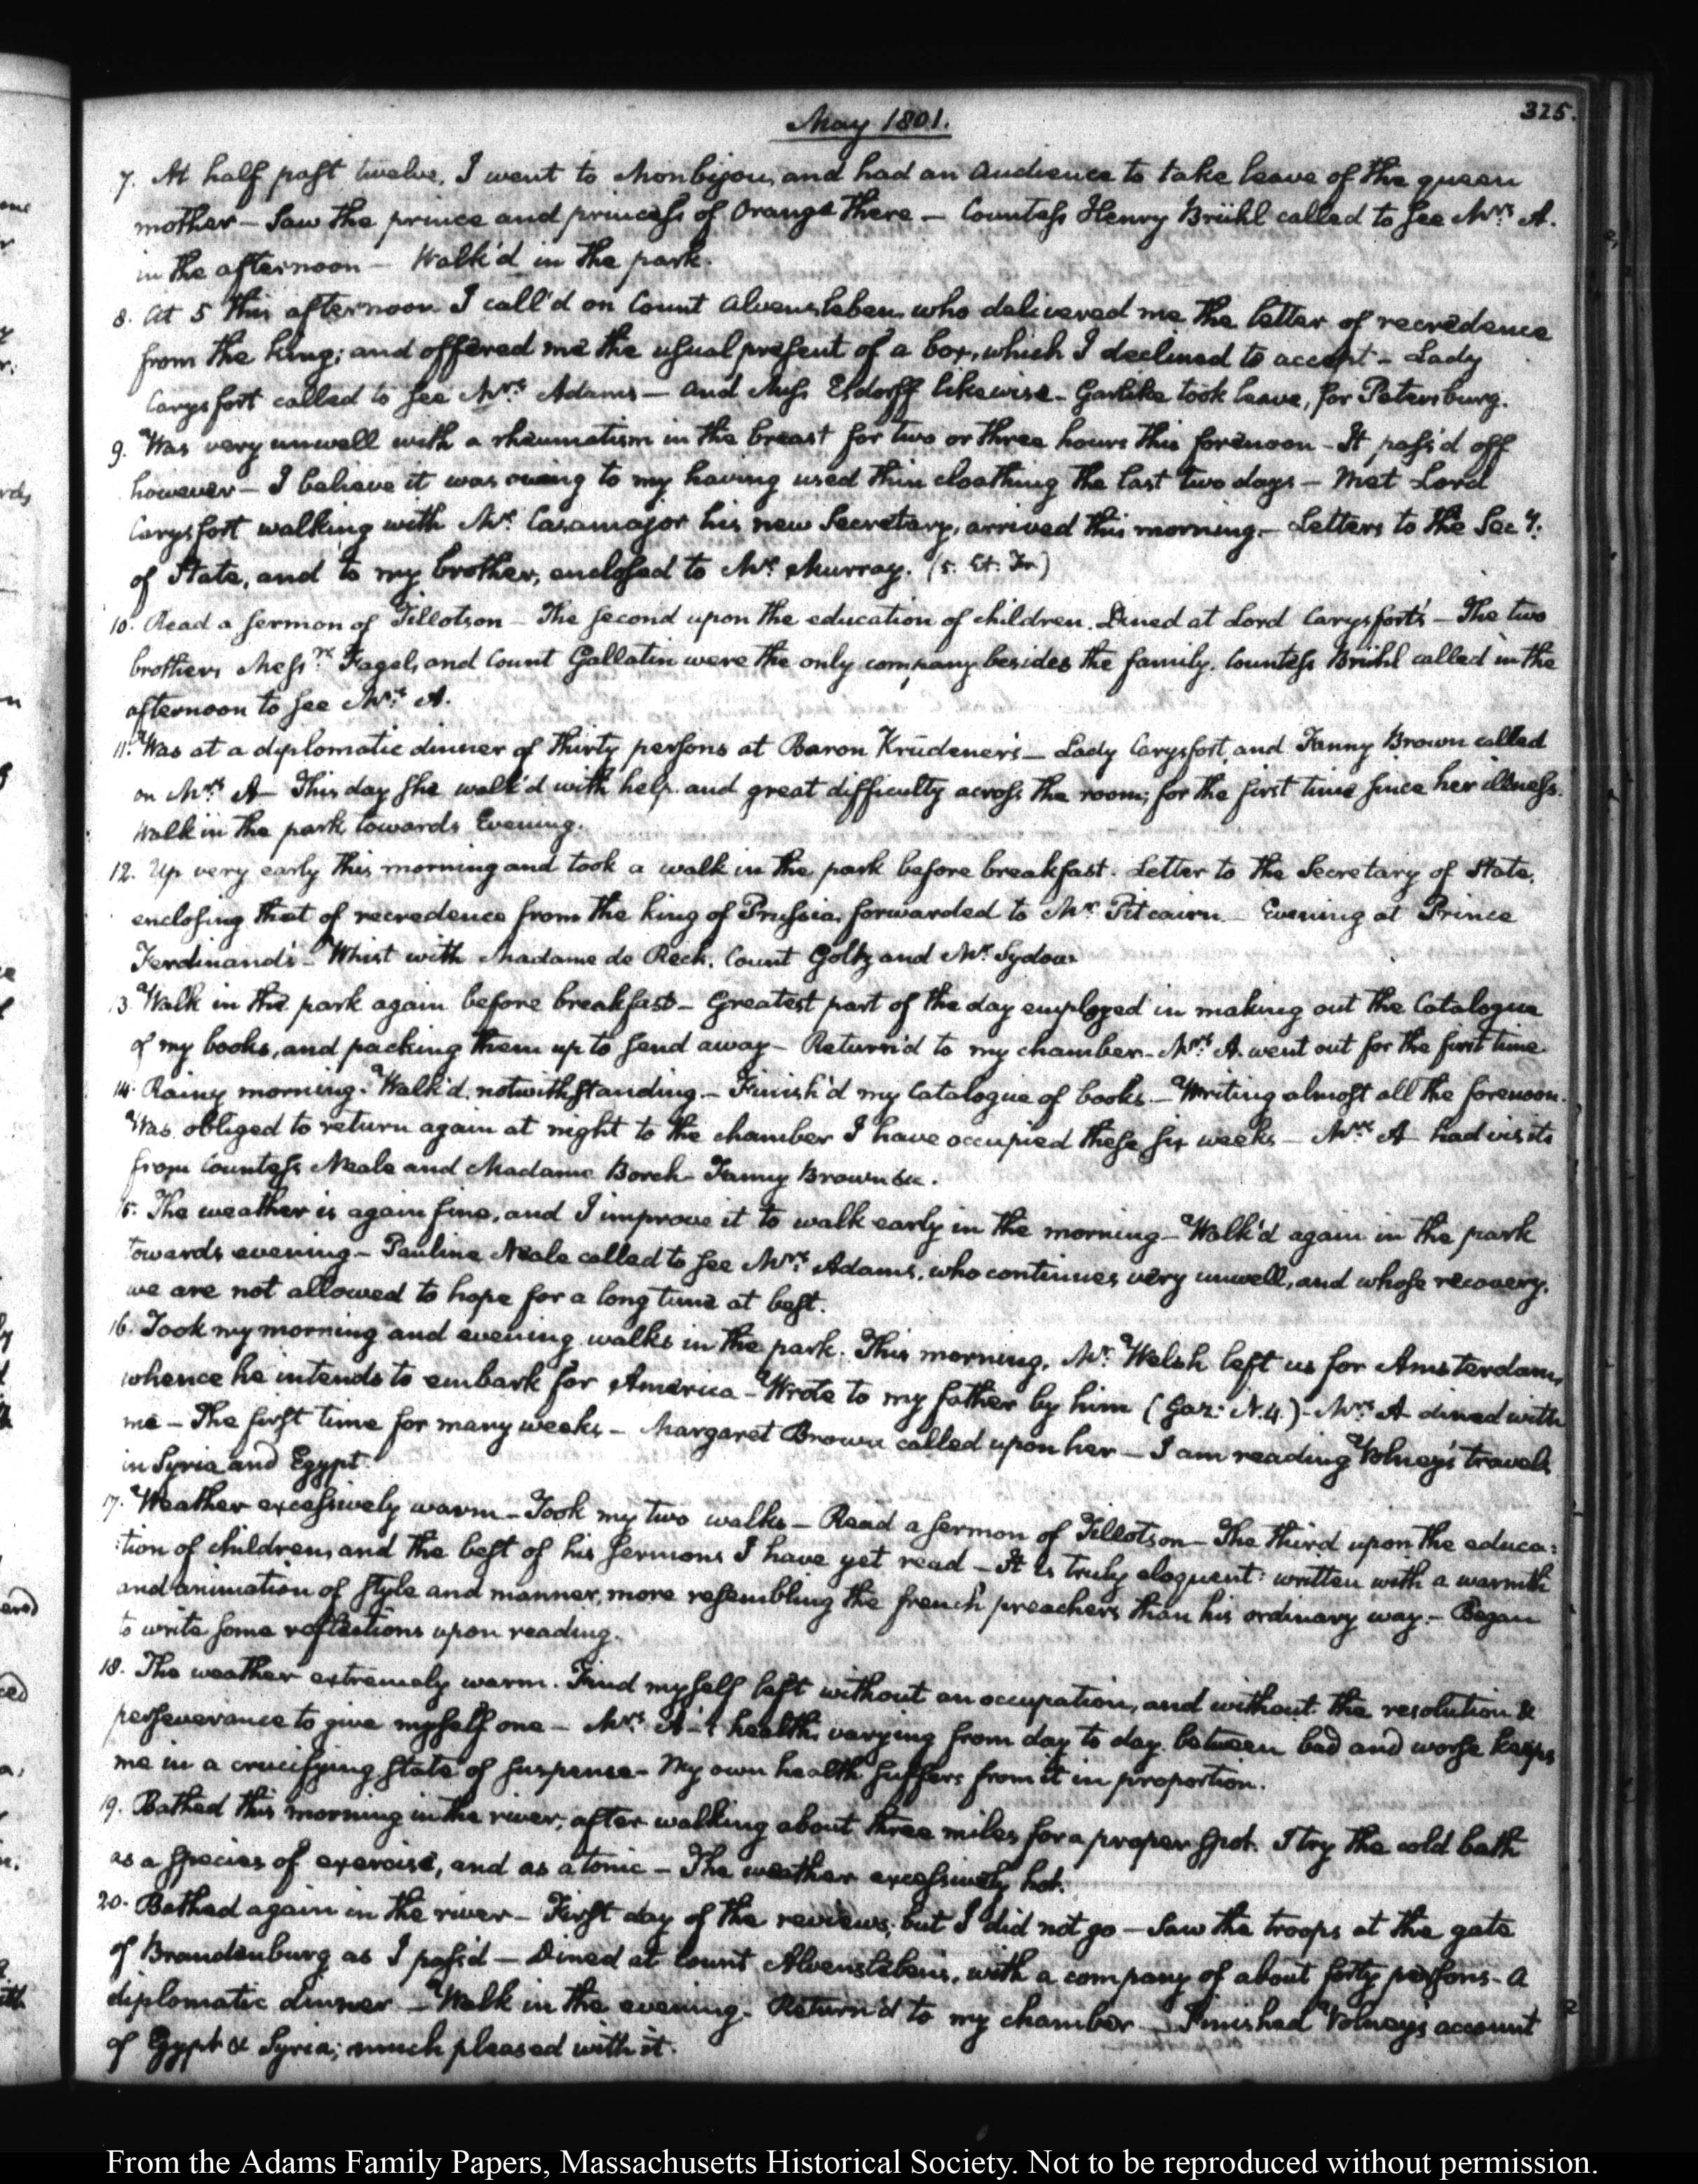 325.
May 1801.
7. At half past twelve, I went to Monbijou, and had an audience to take leave of the queen
mother — Saw the prince and princess of Orange there — Countess Henry Brühl called to see Mrs. A.
in the afternoon — Walk'd in the park.
8. At 5 this afternoon I call'd on Count Alvensleben who delivered me the letter of recredence
from the king; and offered me the usual present of a box, which I declined to accept — Lady
Carysfort called to see Mrs. Adams — and Miss Eldorff likewise — Garlike took leave, for Petersburg.
9. Was very unwell with a rheumatism in the breast for two or three hours this forenoon — It pass'd off
however — I believe it was owing to my having used thin cloathing the last two days — Met Lord
Carysfort walking with Mr. Casamajor his new Secretary, arrived this morning. — Letters to the Secy.
of State, and to my brother, enclosed to Mr. Murray. (5. Et. Fr.)
10. Read a sermon of Tillotson — The second upon the education of children. Dined at Lord Carysfort's — The two
brothers Messrs. Fagel, and Count Gallatin were the only company besides the family. Countess Brühl called in the
afternoon to see Mrs. A.
11. Was at a diplomatic dinner of thirty persons at Baron Krüdener's — Lady Carysfort, and Fanny Brown called
on Mrs. A — This day she walk'd with help and great difficulty across the room; for the first time since her illness.
Walk in the park towards Evening.
12. Up very early this morning and took a walk in the park before breakfast. Letter to the Secretary of State,
enclosing that of recredence from the king of Prussia, forwarded to Mr. Pitcairn. Evening at Prince
Ferdinand's — Whist with Madame de Reck, Count Goltz and Mr. Sydow.
13. Walk in the park again before breakfast — Greatest part of the day employed in making out the Catalogue
of my books, and packing them up to send away — Return'd to my chamber — Mrs. A. went out for the first time.
14. Rainy morning. Walk'd, notwithstanding. — Finish'd my Catalogue of books. — Writing almost all the forenoon.
Was obliged to return again at night to the chamber I have occupied these six weeks — Mrs. A — had visits
from Countess Neale and Madame Borch — Fanny Brown &c.
15. The weather is again fine, and I improve it to walk early in the morning — Walk'd again in the park
towards evening — Pauline Neale called to see Mrs. Adams, who continues very unwell, and whose recovery,
we are not allowed to hope for a long time at best.
16. Took my morning and evening walks in the park. This morning, Mr. Welsh left us for Amsterdam,
whence he intends to embark for America — Wrote to my father by him (Gaz: N. 4.) — Mrs. A dined with
me — The first time for many weeks — Margaret Brown called upon her — I am reading Volney's travels
in Syria and Egypt.
17. Weather excessively warm — Took my two walks — Read a sermon of Tillotson — The third upon the educa:
:tion of children, and the best of his sermons I have yet read — It is truly eloquent: written with a warmth
and animation of style and manner, more resembling the french preachers than his ordinary way. — Began
to write some reflections upon reading.
18. The weather extremely warm. Find myself left without an occupation, and without the resolution &
perseverance to give myself one — Mrs. A's health, varying from day to day between bad and worse keeps
me in a crucifying state of suspense — My own health suffers from it in proportion.
19. Bathed this morning in the river, after walking about three miles for a proper spot. I try the cold bath
as a species of exercise, and as a tonic — The weather excessively hot.
20. Bathed again in the river — First day of the reviews, but I did not go — Saw the troops at the gate
of Brandenburg as I pass'd — Dined at Count Alvensleben's, with a company of about forty persons — A
diplomatic dinner — Walk in the evening. Return'd to my chamber — Finished Volney's account
of Egypt & Syria; much pleased with it.
From the Adams Family Papers, Massachusetts Historical Society. Not to be reproduced without permission.